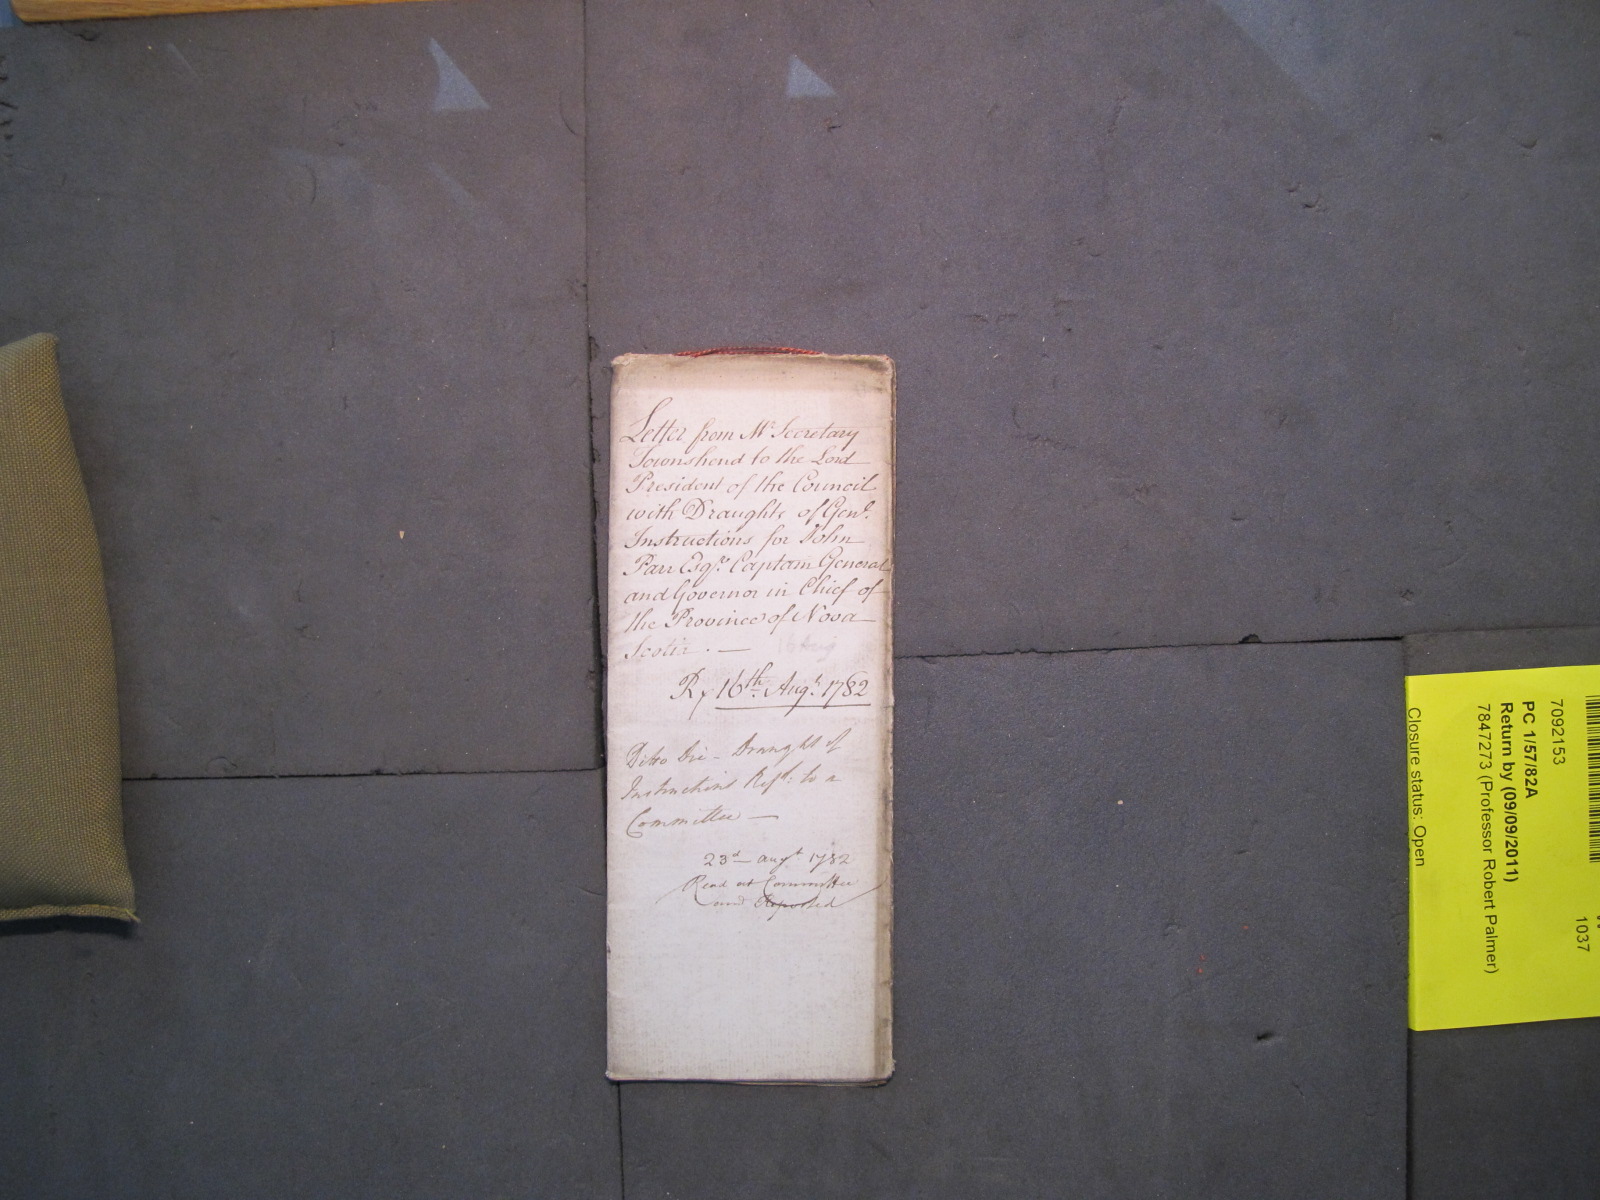 Letter from Mr. Secretary
Townshend to the Lord
President of the Council
with Draughts of Genl.
Instructions for John
Parr Esqr. Captain General
and Governor in Chief of
the Province of Nova
Scotia. —
16 Aug
Rx 16th. Augt. 1782
Ditto Die — Draught of
Instructions Refd. to a
Committee —
23d — augst 1782
Read at Committee
and Reported
7092153
PC 1/57/82A
Return by (09/09/2011)
7847273 (Professor Robert Palmer)
Closure status: Open
1037